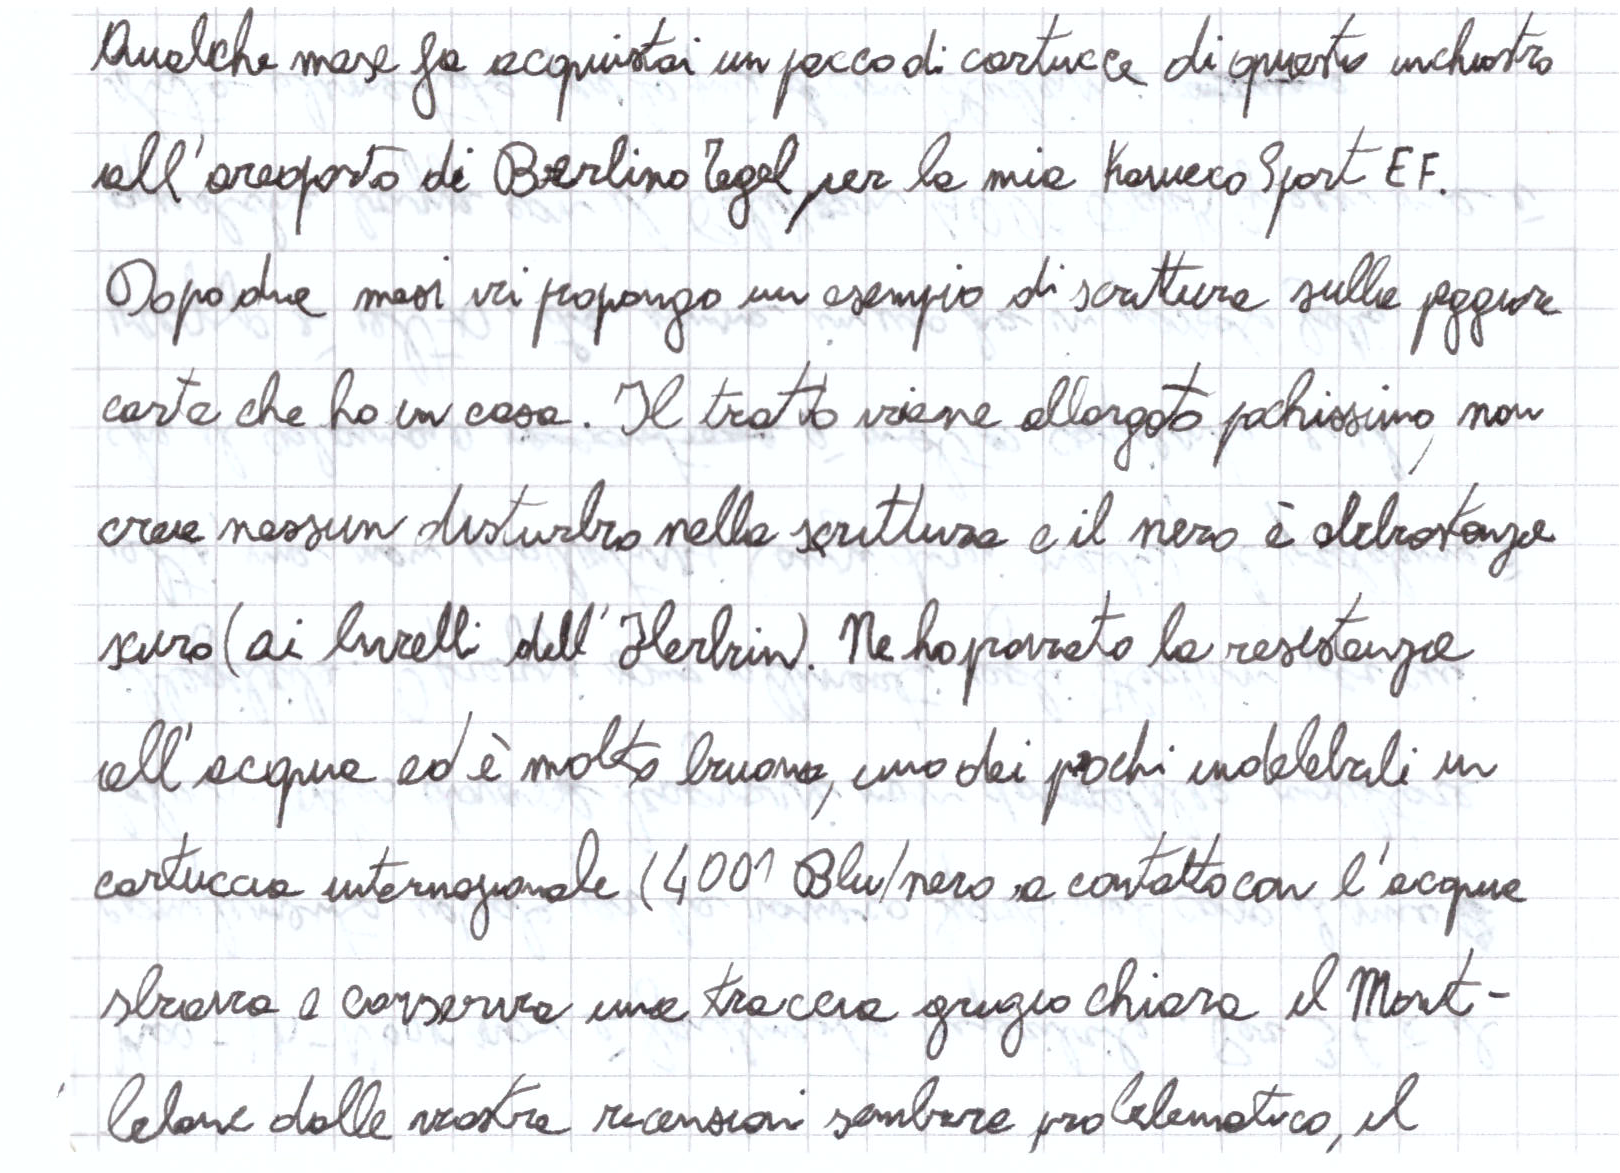 Qualche mese fa acquistai un pacco di cartucce di questo inchiostro
all'areoporto di Berlino Tegel per la mia Kaweco Sport EF.
Dopo due mesi vi propongo un esempio di scrittura sulla peggiore
carta che ho in casa. Il tratto viene allargato pochissimo, non
crea nessun disturbo nella scrittura e il nero è abbastanza
scuro (ai livelli dell'Herbin). Ne ho provato la resistenza
all'acqua ed è molto buona, uno dei pochi indelebili in
cartuccia internazionale (4001 Blu/nero a contatto con l'acqua
sbava e conserva una traccia grigio chiara il Mont-
blanc dalle vostre recensioni sembra problematico, il